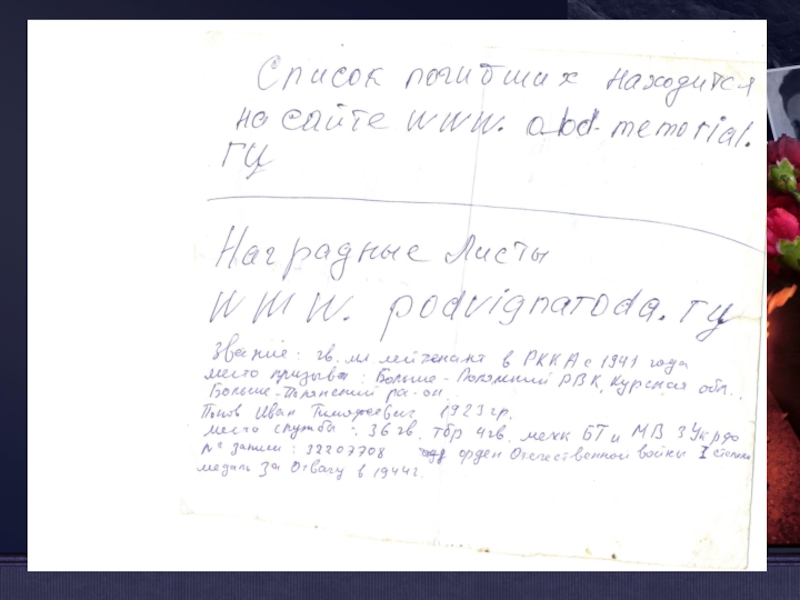 Список погибших находится
на сайте www. obd-memorial.
ru
Наградные листы
www. podvignaroda. ru
Звание: гв. мл лейтенант в РККА с 1941 года
место призыва: Больше-Полянский РВК, Курская обл.,
Больше-Полянский ра-он.
Попов Иван Тимофеевич 1923 гр.
место службы: 36 гв. тбр 4 гв. мехк БТ и МВ 3 Укр фр
№ записи: 32207708 орден Отечественной войны I степени
медаль За Отвагу в 1944 г.